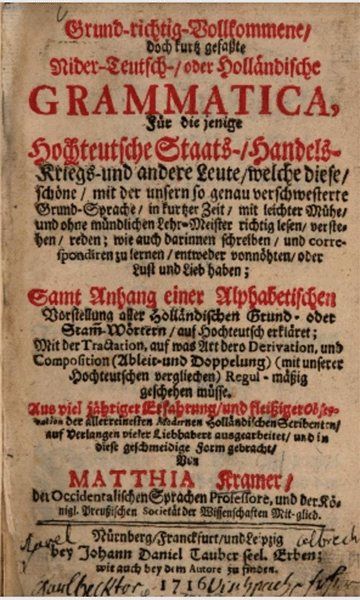 Grund-richtig-Vollkommene/
doch kurtz gefaßte
Nider-Teutsch-/oder Holländische
GRAMMATICA,
Für die jenige
Hochteutsche Staats-/Handels-
Kriegs-und andere Leute/welche diese/
schöne/mit der unsern so genau verschwesterte
Grund-Sprache/in kurtzer Zeit/mit leichter Mühe/
und ohne mündlichen Lehr-Meister richtig lesen/verste-
hen/reden; wie auch darinnen schreiben/und corre-
spondiren zu lernen/entweder vonnöhten/oder
Lust und Lieb haben;
Samt Anhang einer Alphabetischen
Vorstellung aller Holländischen Grund- oder
Stam̃-Wörtern/auf Hochteutsch erkläret;
Mit der Tractation, auf was Art dero Derivation, und
Composition (Ableit-und Doppelung) (mit unserer
Hochteutschen vergliechen) Regul-mäßig
geschehen müsse.
Aus viel jähriger Erfahrung/und fleißiger Obser-
vation der allerreinsten Modernen Holländischen Scribenten/
auf Verlangen vieler Liebhabere ausgearbeitet/und in
diese geschmeidige Form gebracht/
Von
MATTHIA Kramer/
der Occidentalischen Sprachen Professore, und der Kö-
nigl. Preußischen Societät der Wissenschaften Mit-glied.
Nürnberg/Franckfurt/und Leipzig
bey Johann Daniel Tauber seel. Erben;
wie auch bey dem Autore zu finden.
1716